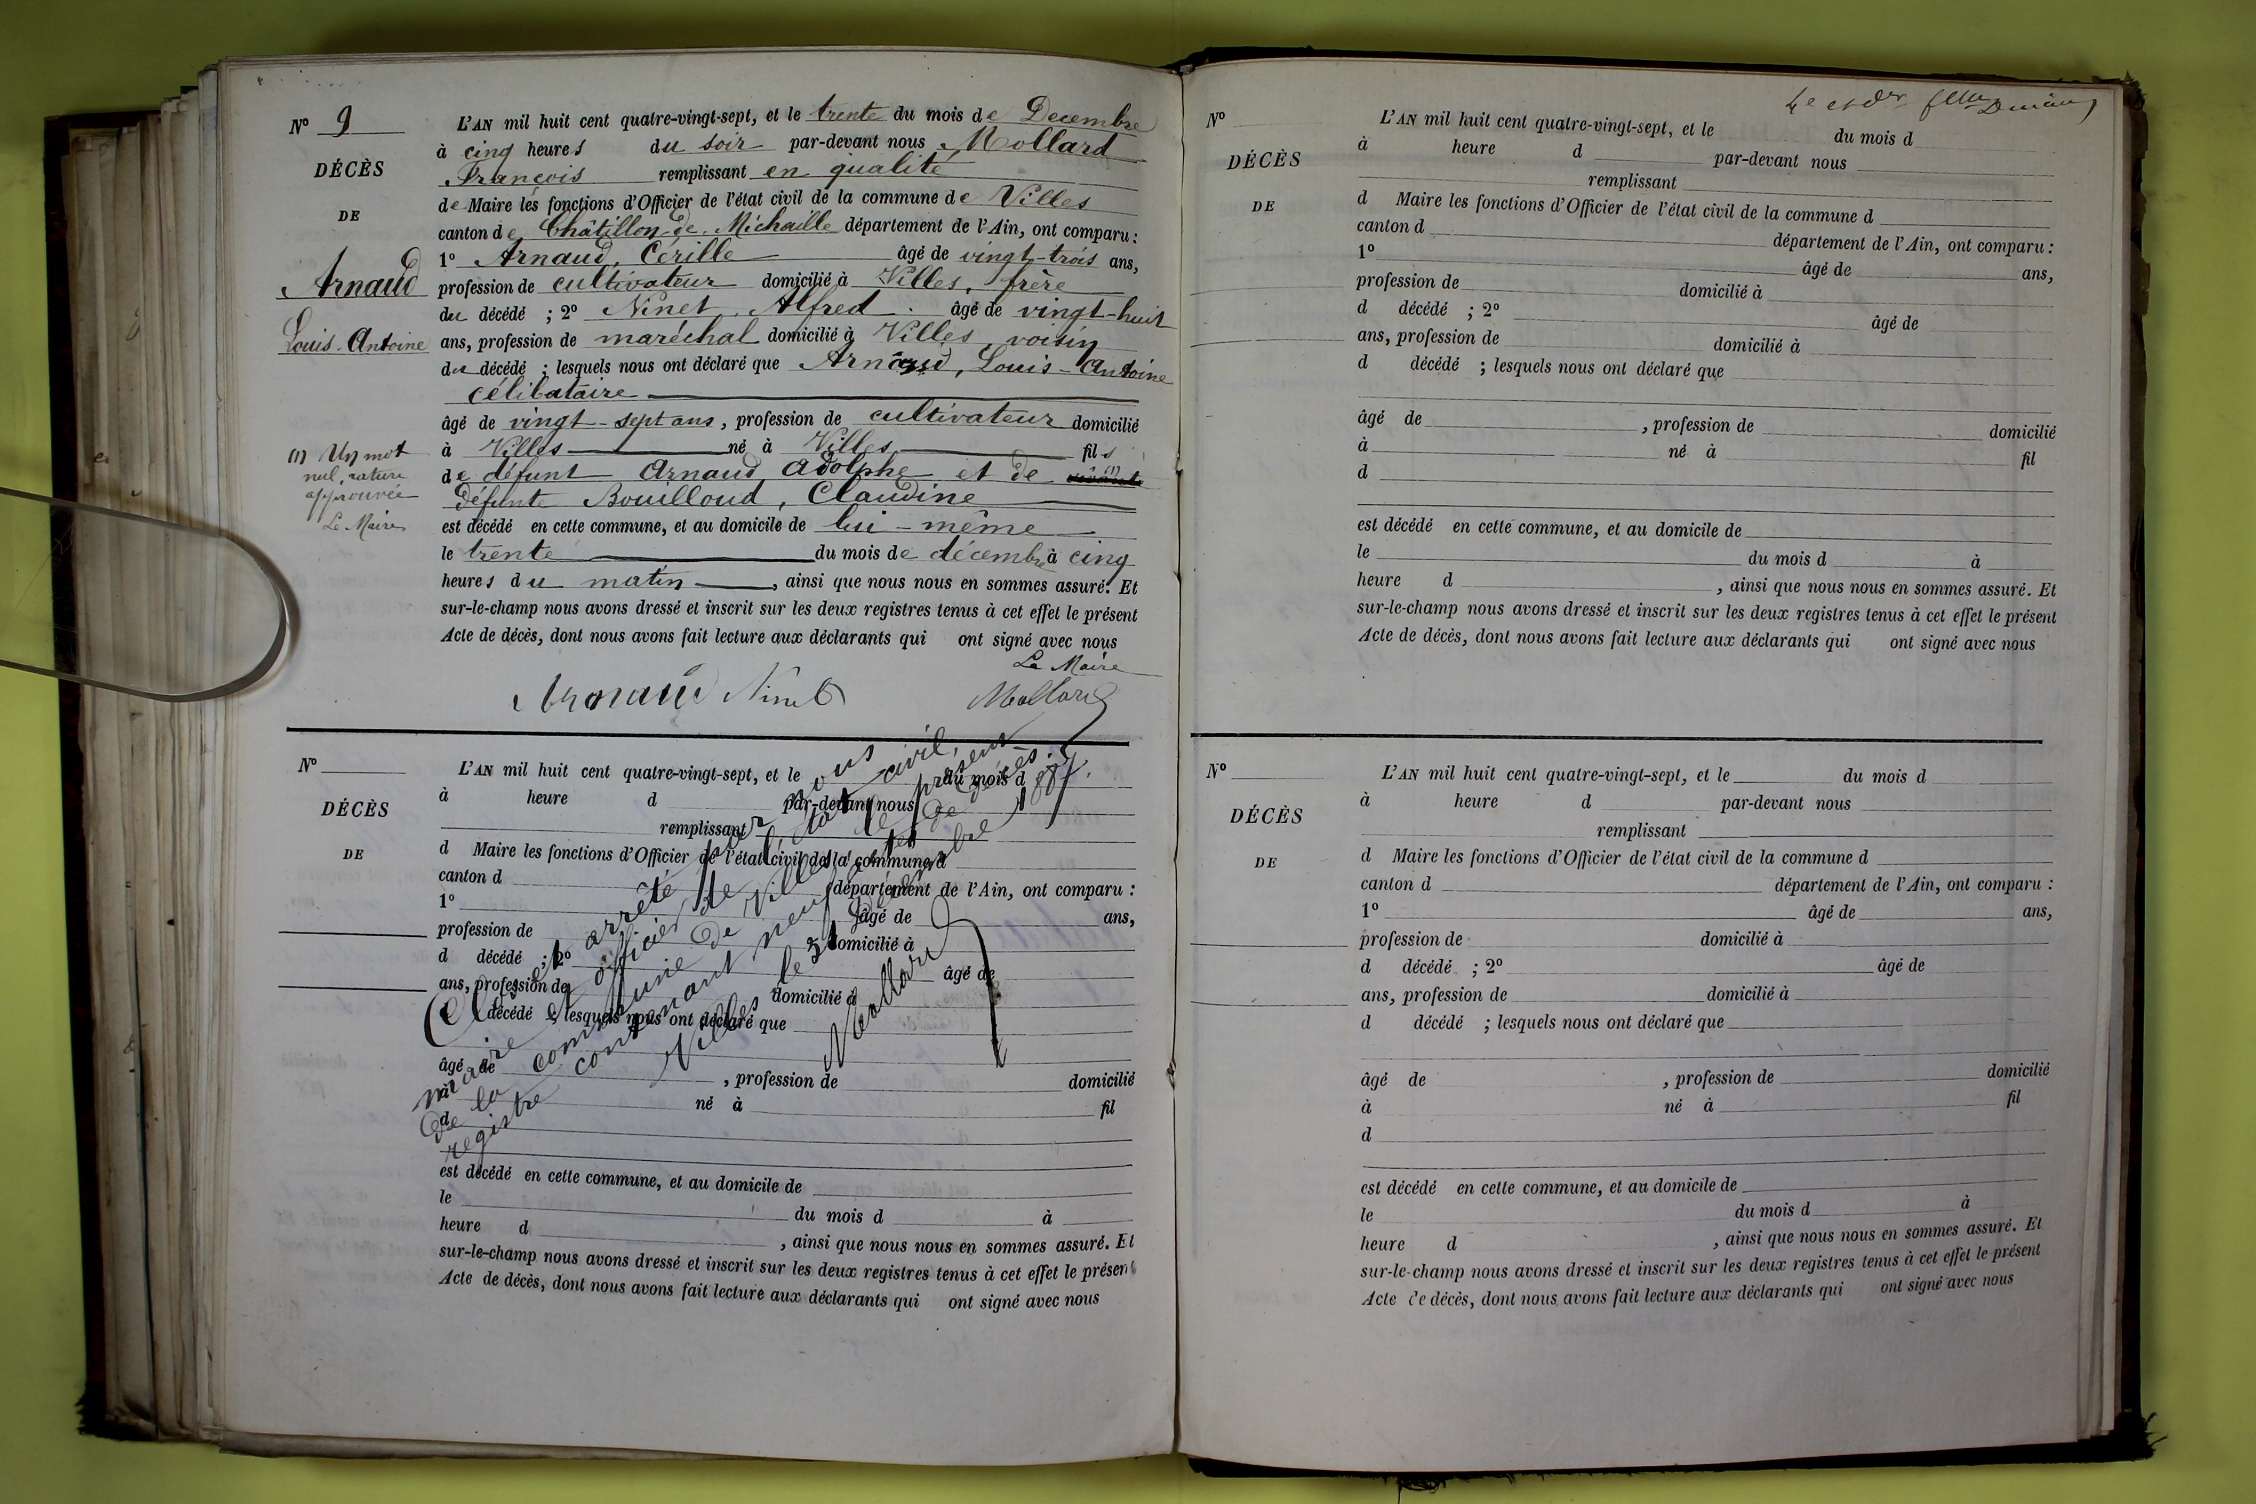 N° 9
DÉCÈS
DE
Arnaud
Louis-Antoine
(1) Un mot
nul, rature
approuvée
Le Maire
L'AN mil huit cent quatre-vingt-sept, et le trente du mois de Decembre
à cinq heures du soir par-devant nous Mollard
François remplissant en qualité
de Maire les fonctions d'Officier de l'état civil de la commune de Villes
canton de Châtillon-de-Michaille département de l'Ain, ont comparu :
1° Arnaud, Cérille âgé de vingt-trois ans,
profession de cultivateur domicilié à Villes, frère
du décédé ; 2° Ninet, Alfred âgé de vingt-huit
ans, profession de maréchal domicilié à Villes, voisin
du décédé ; lesquels nous ont déclaré que Arnaud, Louis-Antoine
célibataire
âgé de vingt-sept ans, profession de cultivateur domicilié
à Villes né à Villes fils
de défunt Arnaud Adolphe et de vivante (1)
défunte Bouilloud, Claudine
est décédé en cette commune, et au domicile de lui-même
le trente du mois de décembre à cinq
heures du matin, ainsi que nous nous en sommes assuré. Et
sur-le-champ nous avons dressé et inscrit sur les deux registres tenus à cet effet le présent
Acte de décès, dont nous avons fait lecture aux déclarants qui ont signé avec nous
Le Maire
Arnaud Ninet Mollard
N°
DÉCÈS
DE
L'AN mil huit cent quatre-vingt-sept, et le du mois d
à heure d par-devant nous
remplissant
d Maire les fonctions d'Officier de l'état civil de la commune d
canton d département de l'Ain, ont comparu :
1° âgé de ans,
profession de domicilié à
d décédé ; 2° âgé de
ans, profession de domicilié à
d décédé ; lesquels nous ont déclaré que
âgé de , profession de domicilié
à né à fil
d
est décédé en cette commune, et au domicile de
le du mois d à
heure d , ainsi que nous nous en sommes assuré. Et
sur-le-champ nous avons dressé et inscrit sur les deux registres tenus à cet effet le présent
Acte de décès, dont nous avons fait lecture aux déclarants qui ont signé avec nous
Clos et arrêté par nous
maire et officier de l'état civil,
de la commune de Villes le présent
registre contenant neuf actes de décès.
Villes le 31 Décembre 1887.
Mollard
4e et der
N°
DÉCÈS
DE
L'AN mil huit cent quatre-vingt-sept, et le du mois d
à heure d par-devant nous
remplissant
d Maire les fonctions d'Officier de l'état civil de la commune d
canton d département de l'Ain, ont comparu :
1° âgé de ans,
profession de domicilié à
d décédé ; 2° âgé de
ans, profession de domicilié à
d décédé ; lesquels nous ont déclaré que
âgé de , profession de domicilié
à né à fil
d
est décédé en cette commune, et au domicile de
le du mois d à
heure d , ainsi que nous nous en sommes assuré. Et
sur-le-champ nous avons dressé et inscrit sur les deux registres tenus à cet effet le présent
Acte de décès, dont nous avons fait lecture aux déclarants qui ont signé avec nous
N°
DÉCÈS
DE
L'AN mil huit cent quatre-vingt-sept, et le du mois d
à heure d par-devant nous
remplissant
d Maire les fonctions d'Officier de l'état civil de la commune d
canton d département de l'Ain, ont comparu :
1° âgé de ans,
profession de domicilié à
d décédé ; 2° âgé de
ans, profession de domicilié à
d décédé ; lesquels nous ont déclaré que
âgé de , profession de domicilié
à né à fil
d
est décédé en cette commune, et au domicile de
le du mois d à
heure d , ainsi que nous nous en sommes assuré. Et
sur-le-champ nous avons dressé et inscrit sur les deux registres tenus à cet effet le présent
Acte de décès, dont nous avons fait lecture aux déclarants qui ont signé avec nous